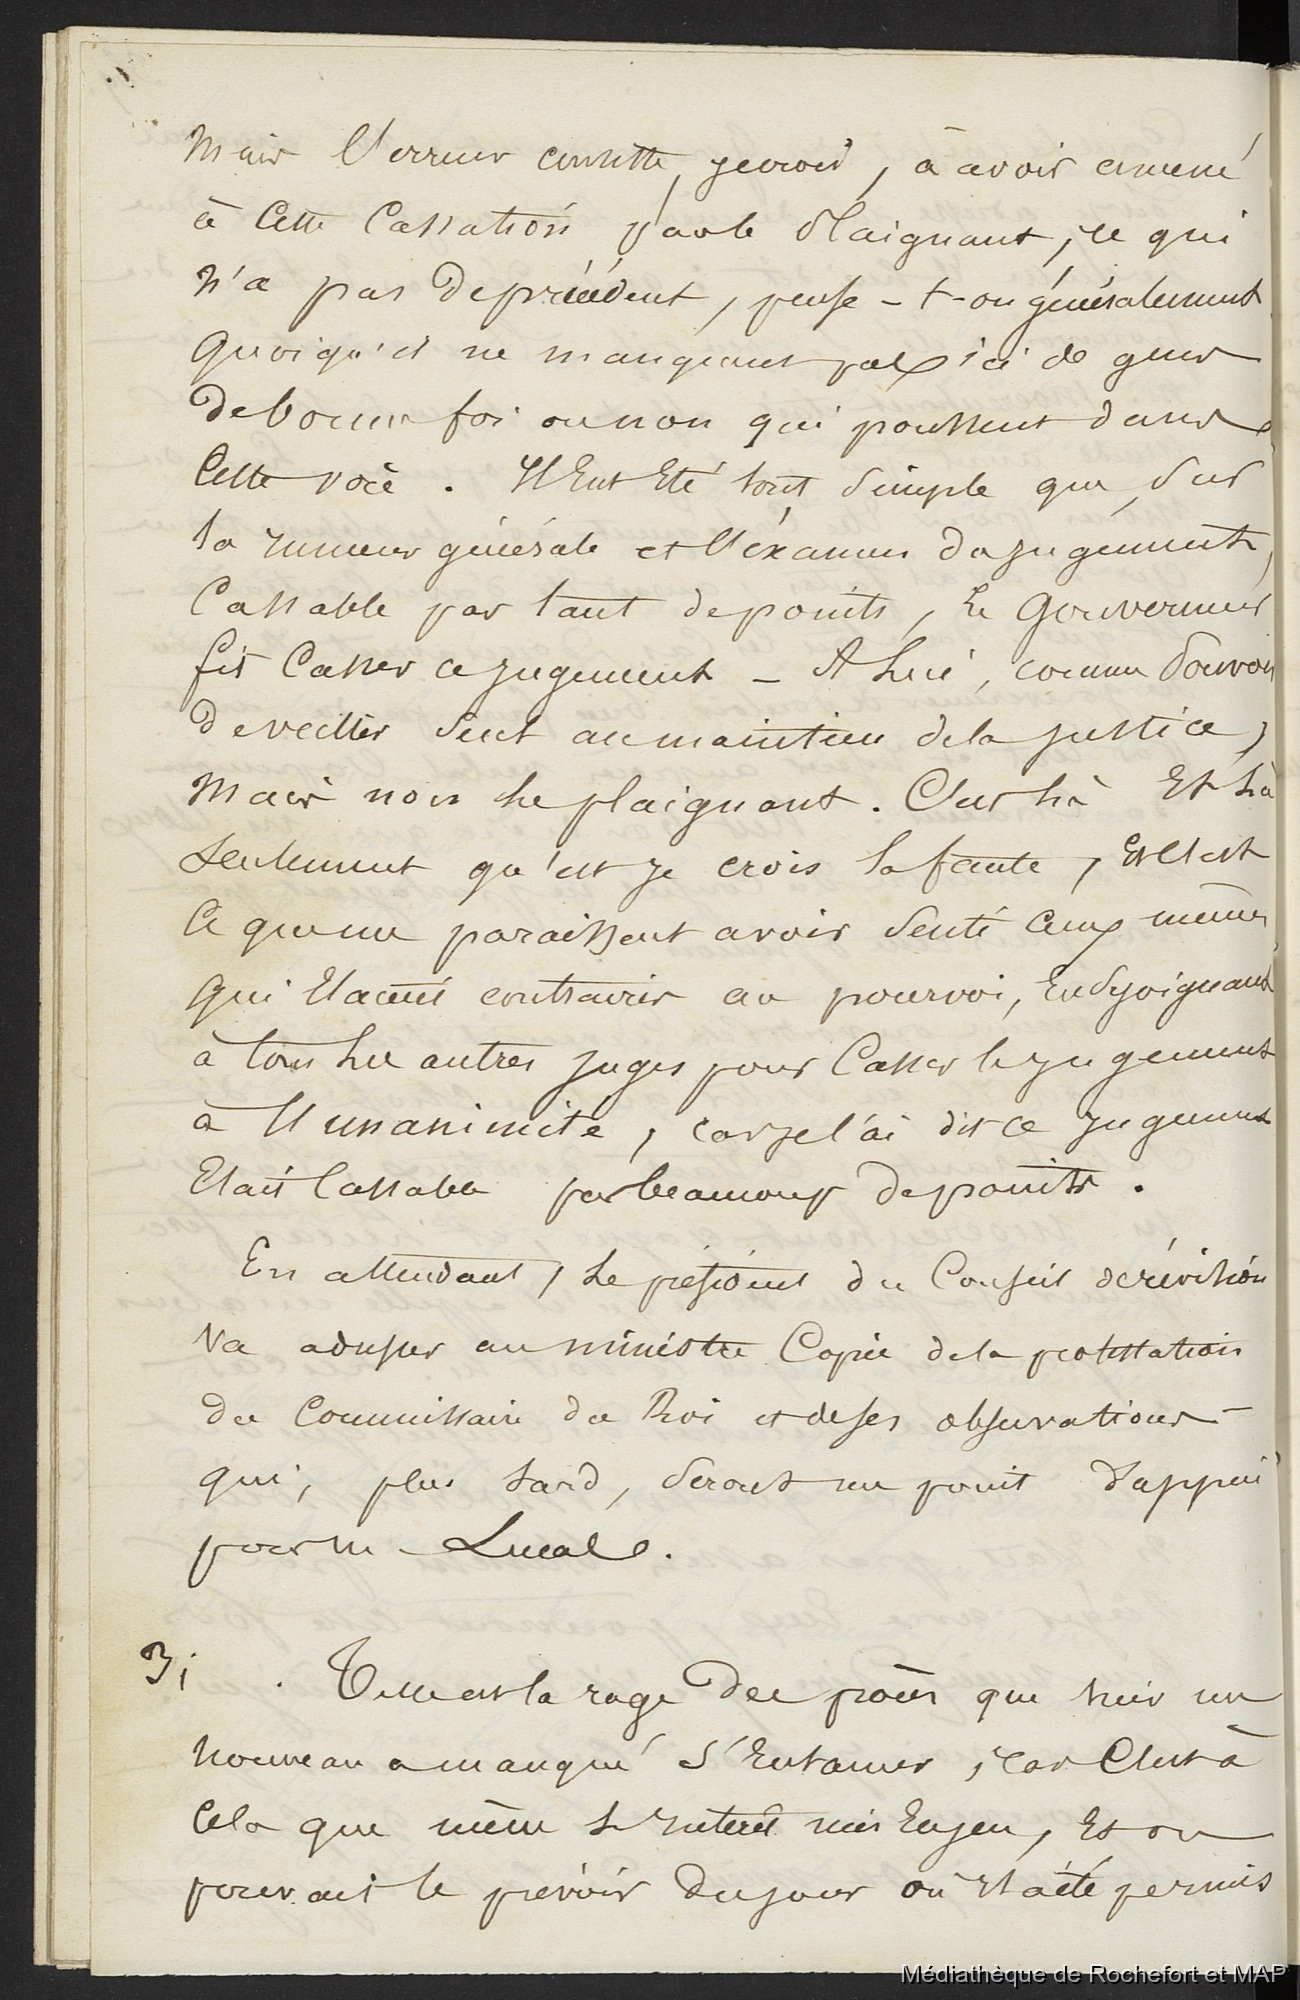 Mais l'erreur consiste, je crois, à avoir amené
à cette Cassation par le plaignant, ce qui
n'a pas de précédent, pense-t-on généralement
quoiqu'il ne manquent pas ici de gens
de bonne foi ou non qui poussent dans
cette voie. Il eut été tout simple que, sur
la rumeur générale et l'examen du jugement,
Cassable par tant de points, le Gouverneur
fit Casser ce jugement - A lui, comme pouvoir
de veiller seul au maintien de la justice,
Mais non le plaignant. C'est là Et là
seulement qu'est je crois la faute, et c'est
ce que me paraissent avoir senti ceux mêmes
qui étaient contraires au pourvoi, en se joignant
à tous les autres juges pour Casser le jugement
à l'unanimité, car je l'ai dit ce jugement
était Cassable par beaucoup de points.
En attendant, le président du Conseil de révision
va adresser au ministre Copie de la protestation
du Commissaire du Roi et de ses observations
qui, plus tard, seront un point d'appui
pour M Lucal.
3; Telle est la rage des procès que hier un
nouveau a manqué s'entamer, car c'est à
cela que mène l'intérêt mis en jeu, et on
pouvait le prévoir du jour où il a été permis
Médiathèque de Rochefort et MAP